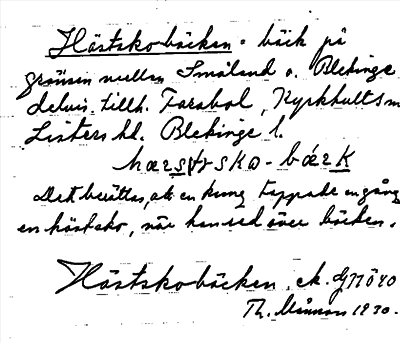 Hästskobäcken - bäck på
gränsen mellan Småland o. Blekinge
delvis tillh. Farabol, Kyrkhults sn
Listers hd. Blekinge l.
Det berättas, att en kung tappade en gång
en hästsko, när han red över bäcken.
Hästskobäcken, ek.
Th. 1930.